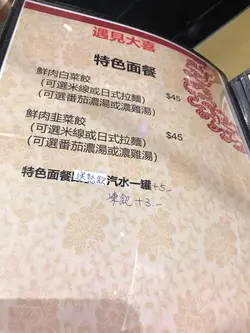 遇見大喜
特色面餐
鮮肉白菜餃 $45
(可選米線或日式拉麵)
(可選番茄濃湯或濃雞湯)
鮮肉韭菜餃 $45
(可選米線或日式拉麵)
(可選番茄濃湯或濃雞湯)
特色面餐 送熱飲 汽水一罐+5.-
凍飲 +3.-